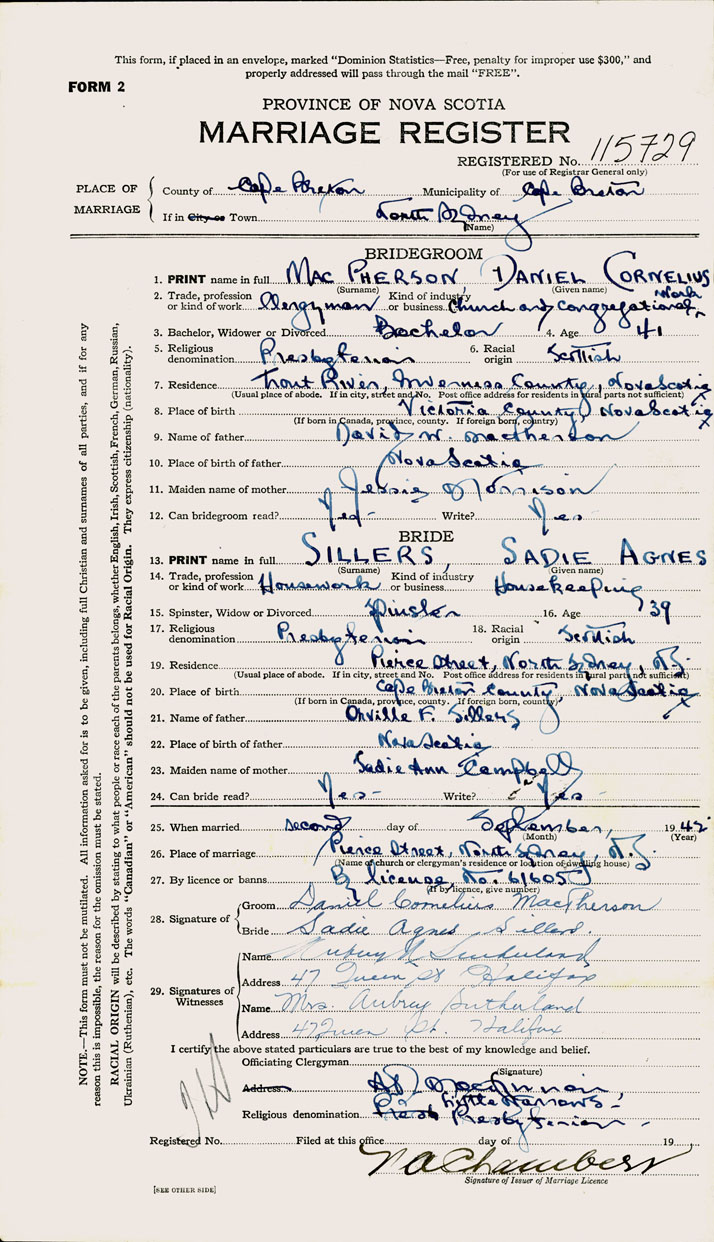 This form, if placed in an envelope, marked "Dominion Statistics—Free, penalty for improper use $300," and
properly addressed will pass through the mail "FREE".
FORM 2
PROVINCE OF NOVA SCOTIA
MARRIAGE REGISTER
REGISTERED No. 115729
(For use of Registrar General only)
PLACE OF MARRIAGE
County of Cape Breton Municipality of Cape Breton
If in City or Town North Sydney
(Name)
BRIDEGROOM
1. PRINT name in full MAC PHERSON, DANIEL CORNELIUS
(Surname) (Given name)
2. Trade, profession or kind of work Clergyman Kind of industry or business Church and Congregational Work
3. Bachelor, Widower or Divorced Bachelor 4. Age 41
5. Religious denomination Presbyterian 6. Racial origin Scottish
7. Residence Trout River, Inverness County, Nova Scotia
(Usual place of abode. If in city, street and No. Post office address for residents in rural parts not sufficient)
8. Place of birth Victoria County, Nova Scotia
(If born in Canada, province, county. If foreign born, country)
9. Name of father David W. MacPherson
10. Place of birth of father Nova Scotia
11. Maiden name of mother Jessie Morrison
12. Can bridegroom read? Yes- Write? Yes
BRIDE
13. PRINT name in full SILLERS, SADIE AGNES
(Surname) (Given name)
14. Trade, profession or kind of work Housework Kind of industry or business Housekeeping
15. Spinster, Widow or Divorced Spinster 16. Age 39
17. Religious denomination Presbyterian 18. Racial origin Scottish
19. Residence Pierce Street, North Sydney, N.S.
(Usual place of abode. If in city, street and No. Post office address for residents in rural parts not sufficient)
20. Place of birth Cape Breton County, Nova Scotia
(If born in Canada, province, county. If foreign born, country)
21. Name of father Orville F. Sillers
22. Place of birth of father Nova Scotia
23. Maiden name of mother Sadie Ann Campbell
24. Can bride read? Yes- Write? Yes-
25. When married second day of September, 1942
(Month) (Year)
26. Place of marriage Pierce Street, North Sydney, N.S.
(Name of church or clergyman's residence or location of dwelling house)
27. By licence or banns By license, No. 61605
(If by licence, give number)
28. Signature of
Groom Daniel Cornelius MacPherson
Bride Sadie Agnes Sillers.
29. Signatures of Witnesses
Name Aubrey Sutherland
Address 47 Queen St Halifax
Name Mrs. Aubrey Sutherland
Address 47 Queen St. Halifax
I certify the above stated particulars are true to the best of my knowledge and belief.
Officiating Clergyman
(Signature)
Address Little Narrows-
Religious denomination Presbyterian-
Registered No. Filed at this office day of 19
Chambers
Signature of Issuer of Marriage Licence
[SEE OTHER SIDE]
NOTE.—This form must not be mutilated. All information asked for is to be given, including full Christian and surnames of all parties, and if for any
reason this is impossible, the reason for the omission must be stated.
RACIAL ORIGIN will be described by stating to what people or race each of the parents belongs, whether English, Irish, Scottish, French, German, Russian,
Ukrainian (Ruthenian), etc. The words "Canadian" or "American" should not be used for Racial Origin. They express citizenship (nationality).